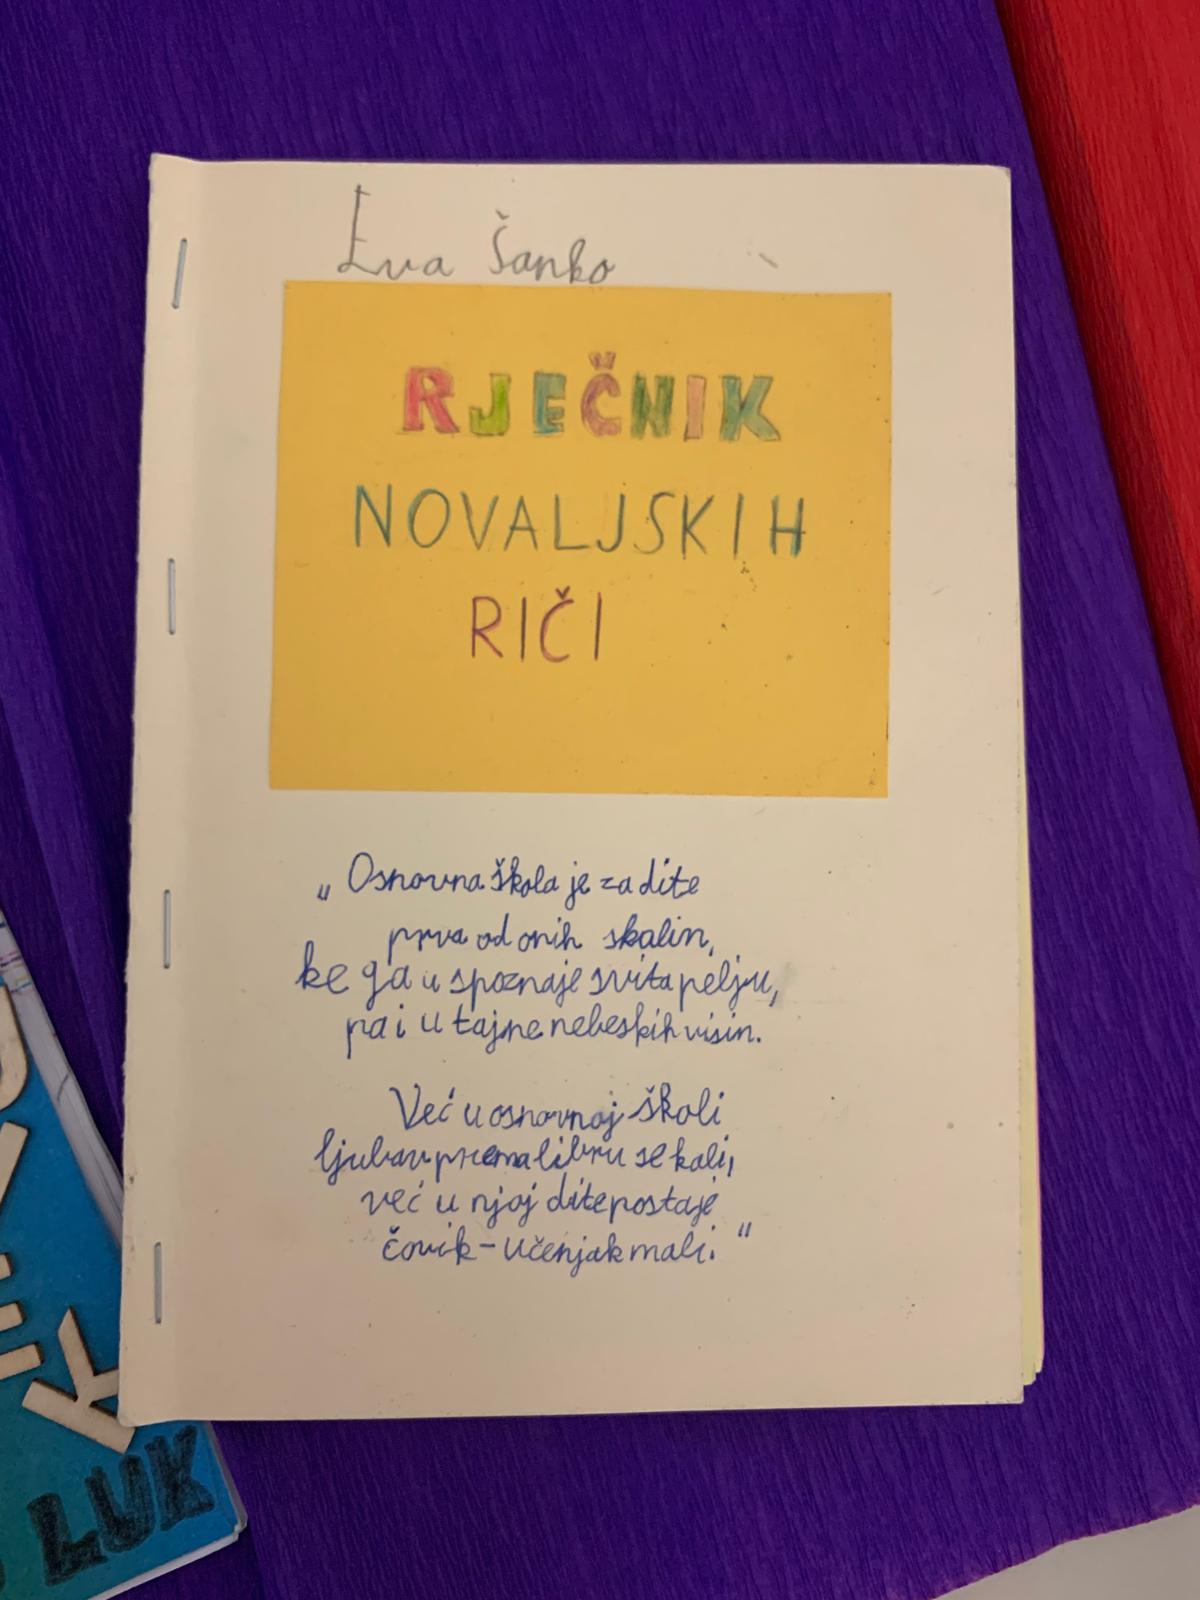 Eva Šanko
RJEČNIK
NOVALJSKIH
RIČI
„Osnovna škola je za dite
prva od onih skalin,
ke ga u spoznaje svita pelju,
pa i u tajne nebeskih visin.
Već u osnovnoj školi
ljubav prema libru se kali,
već u njoj dite postaje
čovik - učenjak mali."
K
LUK